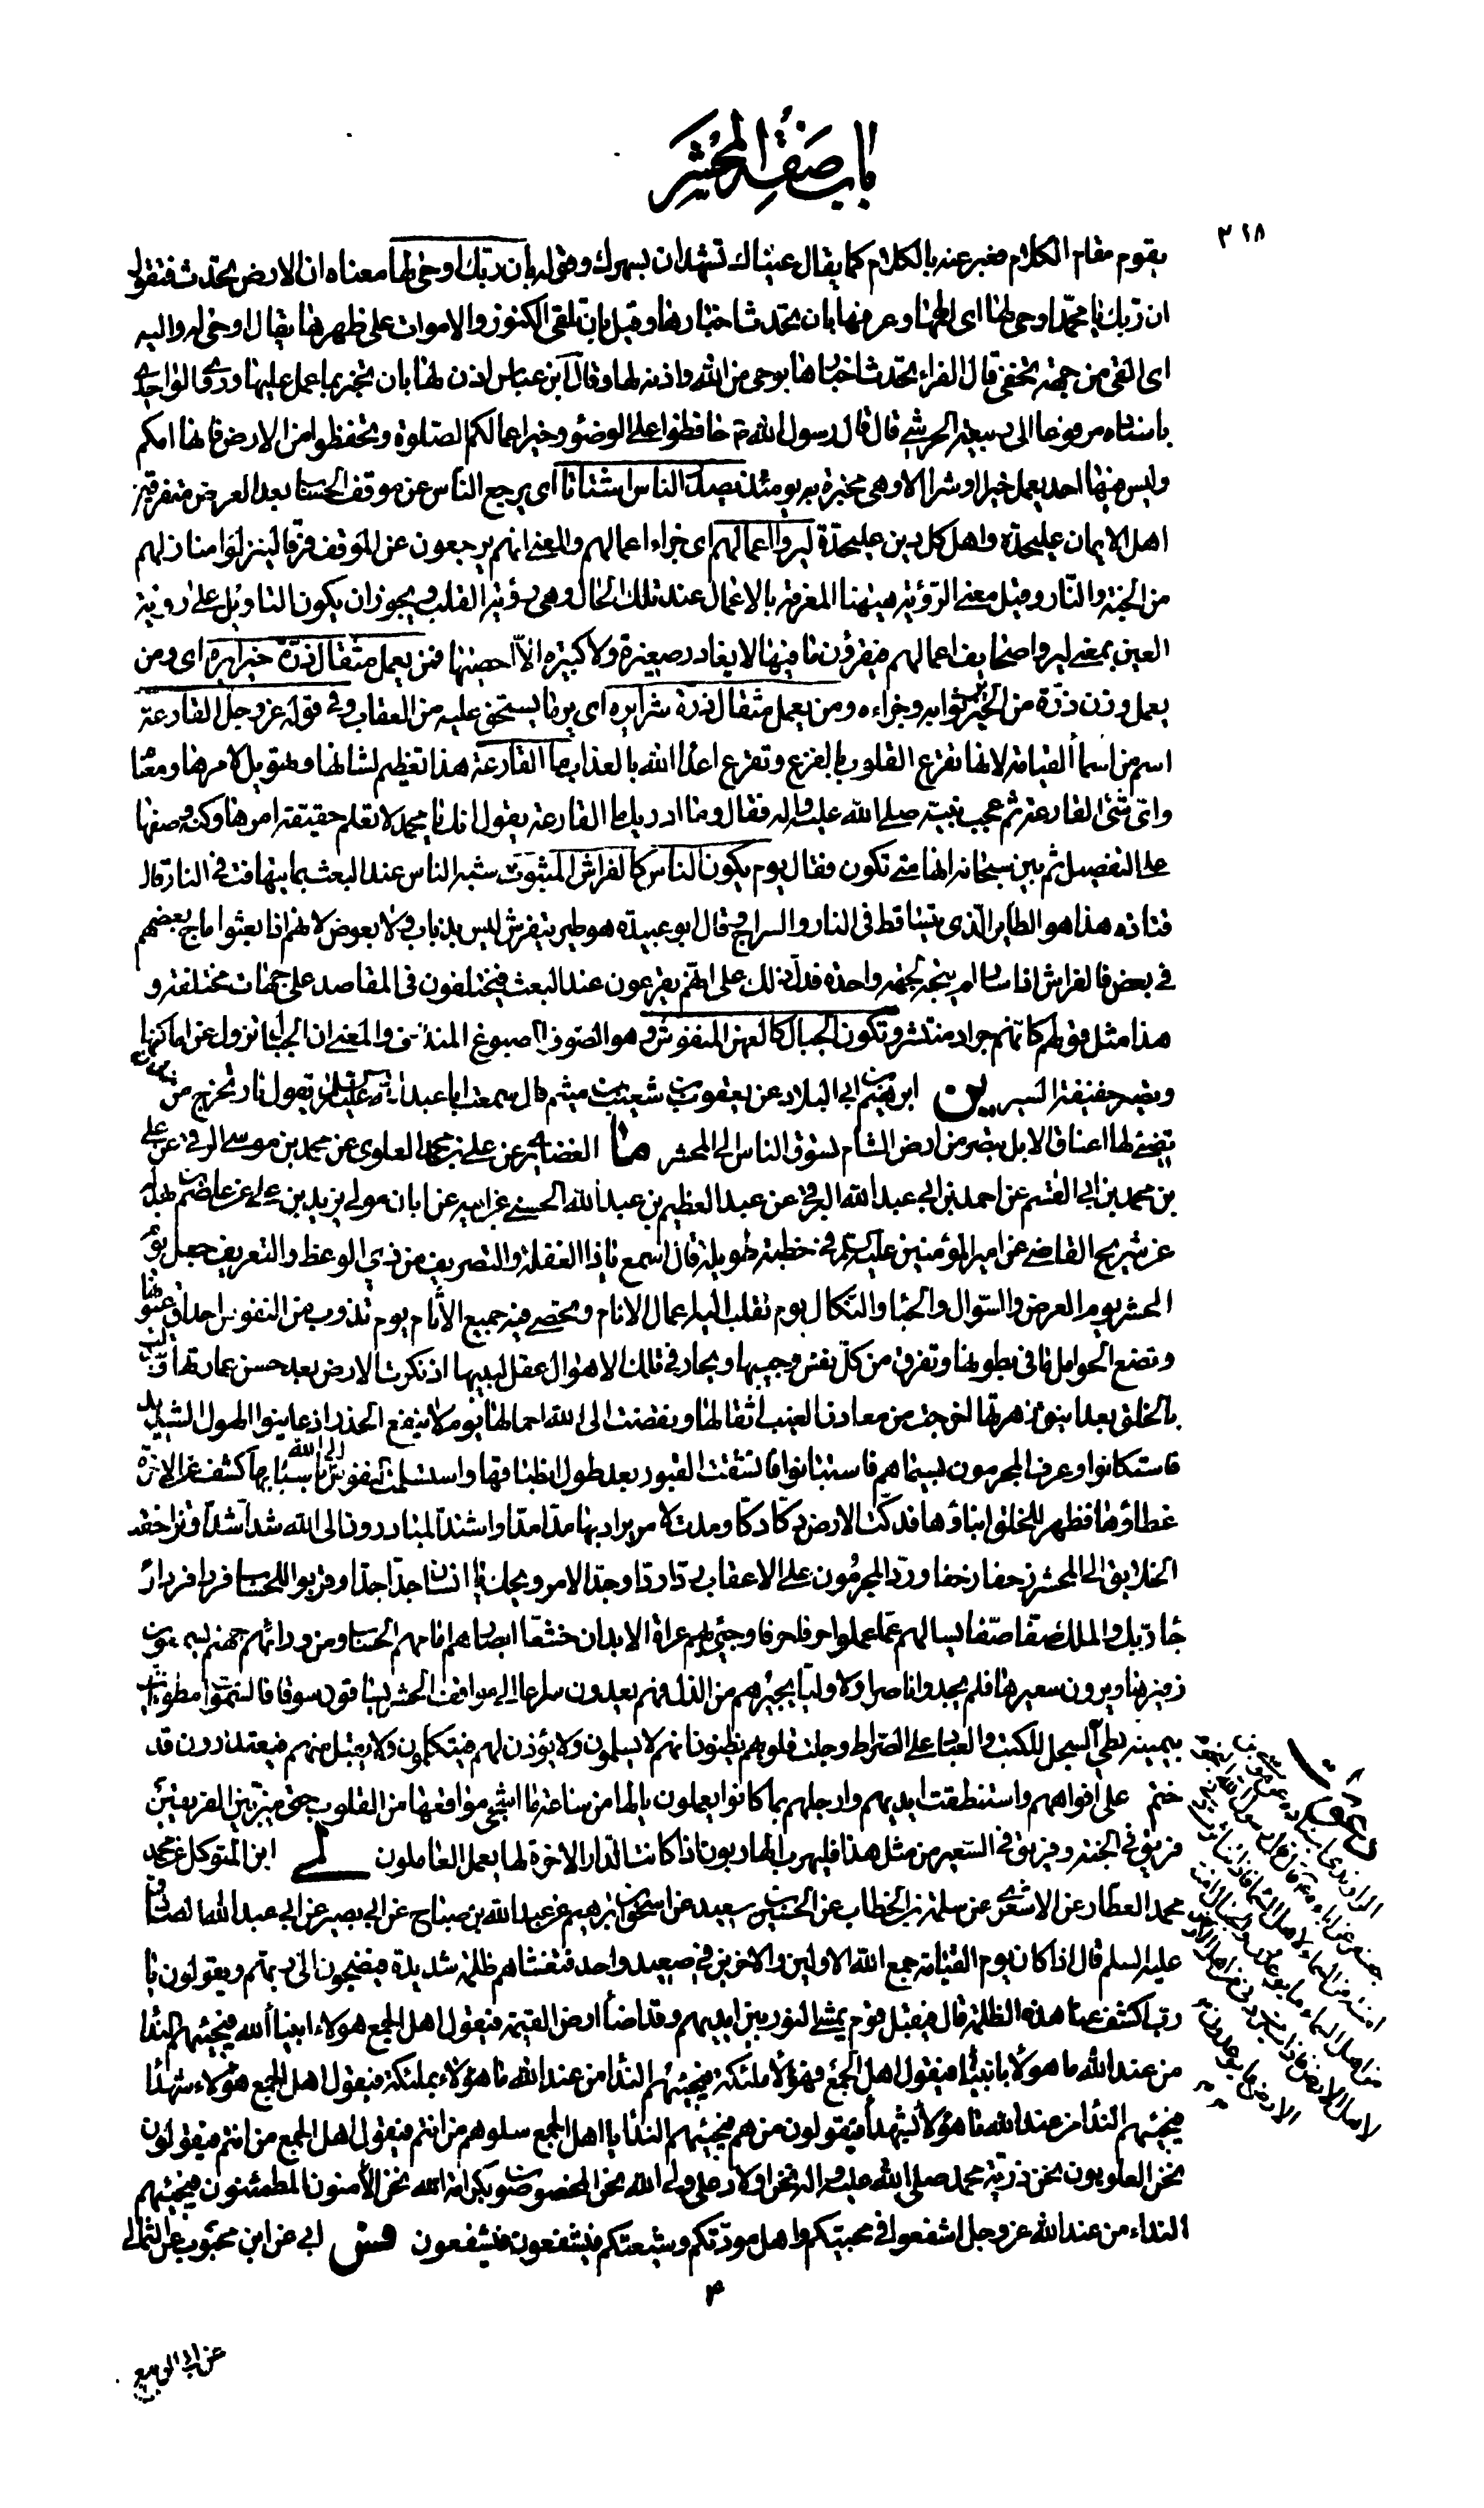 باب صفة المحشر
٣١٨
يقوم مقام الكلام فعبر عنه بالكلام كما يقال عيناك تشهدان بسهرك وقوله بان ربك اوحى لها معناه ان الارض تحدث فتقول
ان ربك يا محمد اوحى لها اى الهمها وعرفها بان تحدث اخبارها وقيل بان تلقى الكنوز والاموات على ظهرها يقال اوحى له واليه
اى القى من جهة تخفى قال الفراء تحدث اخبارها بوحى من الله واذنه لها وقال ابن عباس اذن لها بان تخبر بما عمل عليها وروى الواحدى
باسناده مرفوعا الى ربيعة الحرشى قال قال رسول الله ص حافظوا على الوضوء وخير اعمالكم الصلوة وتحفظوا من الارض فانها امكم
وليس منها احد يعمل خيرا او شرا الا وهى مخبرة به يومئذ يصدر الناس اشتاتا اى يرجع الناس عن موقف الحساب بعد العرض متفرقين
اهل الايمان عليحدة واهل كل دين عليحدة ليروا اعمالهم اى جزاء اعمالهم والمعنى انهم يرجعون عن الموقف فرقا لينزلوا منازلهم
من الجنة والنار وقيل معنى الرؤية هيهنا المعرفة بالاعمال عند تلك الحال وهى رؤية القلب ويجوز ان يكون التاويل على رؤية
العين بمعنى ليروا صحايف اعمالهم فيقرؤن ما فيها لا يغادر صغيرة ولا كبيرة الا احصيها فمن يعمل مثقال ذرة خيرا يره اى ومن
يعمل وزن ذرة من الخير ير ثوابه وجزاءه ومن يعمل مثقال ذرة شرا يره اى ير ما يستحق عليه من العقاب وفى قوله عز وجل القارعة
اسم من اسماء القيامة لانها تقرع القلوب بالفزع وتقرع اعداء الله بالعذاب ما القارعة هذا تعظيم لشانها وتهويل لامرها ومعناه
واى شئ القارعة ثم عجب نبيه صلى الله عليه واله فقال وما ادريك ما القارعة يقول انك يا محمد لا تعلم حقيقة امرها وكنه وصفها
على التفصيل ثم بين سبحانه انها متى تكون فقال يوم يكون الناس كالفراش المبثوث شبه الناس عند البعث بما يتهافت فى النار قال
قتادة هذا هو الطاير الذى يتساقط فى النار والسراج وقال ابو عبيدة هو طير يتفرش ليس بذباب ولا بعوض لانهم اذا بعثوا ماج بعضهم
فى بعض فالفراش اذا سار لم يتجه لجهة واحدة فدل ذلك على انهم يفزعون عند البعث فيختلفون فى المقاصد على جهات مختلفة و
هذا مثل قولهم كانهم جراد منتشر وتكون الجبال كالعهن المنفوش وهو الصوف المصبوغ المندف والمعنى ان الجبال تزول عن اماكنها
وتصير خفيفة السير ين ابرهيم بن ابى البلاد عن يعقوب بن شعيب بن ميثم قال سمعت ابا عبدالله عليه السلام يقول نار تخرج من
تضئ لها اعناق الابل ببصرى من ارض الشام تسوق الناس الى المحشر ما الغضايرى عن على بن محمد العلوى عن محمد بن موسى الرقى عن على
بن محمد بن ابى القسم عن احمد بن ابى عبد الله البرقى عن عبد العظيم بن عبد الله الحسنى عن ابيه عن ابان مولى زيد بن على عن عاصم بن بهدلة
عن شريح القاضى عن امير المؤمنين عليه السلام فى خطبة طويلة قال اسمع يا ذا الغفلة والتصريف من ذى الوعظ والتعريف جعل يوم
الحشر يوم العرض والسؤال والحباء والنكال يوم تقلب اليه اعمال الانام وتحصى فيه جميع الاثام يوم تذوب من النفوس احداق عيونها
وتضع الحوامل ما فى بطونها وتفرق من كل نفس وحبيبها ويحار فى تلك الاهوال عقل لبيبها اذ نكرت الارض بعد حسن عمارتها وتبدلت
بالخلق بعد انيق زهرتها اخرجت من معادن الغيب اثقالها ونفضت الى الله احمالها يوم لا ينفع الحذر اذ عاينوا الهول الشديد
فاستكانوا وعرف المجرمون بسيماهم فاستبانوا فانشقت القبور بعد طول انطباقها واستسلمت النفوس الى الله باسبابها كشف عن الاخرة
غطاؤها فظهر للخلق انباؤها فدكت الارض دكا دكا ومدت لامر يراد بها مدا مدا واشتد المبادرون الى الله شدا شدا وتزاحفت
الخلايق الى المحشر زحفا زحفا ورد المجرمون على الاعقاب ردا ردا وجد الامر ويحك يا انسان جدا جدا وقربوا للحساب فردا فردا و
جاء ربك والملك صفا صفا يسالهم عما عملوا حرفا حرفا وجئ بهم عراة الابدان خشعا ابصارهم امامهم الحساب ومن ورائهم جهنم يسمعون
زفيرها ويرون سعيرها فلم يجدوا ناصرا ولا وليا يجيرهم من الذل فهم يعدون سراعا الى مواقف الحشر يساقون سوقا فالسموات مطويات
بيمينه كطى السجل للكتب والعباد على الصراط وجلت قلوبهم يظنون انهم لا يسلمون ولا يؤذن لهم فيتكلمون ولا يقبل منهم فيعتذرون قد
ختم على افواههم واستنطقت ايديهم وارجلهم بما كانوا يعملون يا لها من ساعة ما اشجى مواقعها من القلوب حين ميز بين الفريقين
فريق فى الجنة وفريق فى السعير من مثل هذا فليهرب الهاربون اذا كانت الدار الاخرة لها يعمل العاملون لى ابن المتوكل عن محمد
محمد العطار عن الاشعرى عن سلمة بن الخطاب عن الحسين بن سعيد عن اسحق بن ابرهيم عن عبد الله بن صباح عن ابى بصير عن ابى عبد الله الصادق
عليه السلم قال اذا كان يوم القيامة جمع الله الاولين والاخرين فى صعيد واحد فتغشاهم ظلمة شديدة فيضجون الى ربهم ويقولون يا
رب اكشف عنا هذه الظلمة قال فيقبل قوم يمشى النور بين ايديهم وقد اضاء ارض القيمة فيقول اهل الجمع هولاء انبياء الله فيجيئهم النداء
من عند الله ما هولاء بانبياء فيقول اهل الجمع فهؤلاء ملئكة فيجيئهم النداء من عند الله ما هؤلاء بملئكة فيقول اهل الجمع هؤلاء شهداء
فيجيئهم النداء من عند الله ما هؤلاء بشهداء فيقولون من هم فيجيئهم النداء يا اهل الجمع سلوهم من انتم فيقول اهل الجمع من انتم فيقولون
نحن العلويون نحن ذرية محمد صلى الله عليه واله نحن اولاد على ولى الله نحن المخصوصون بكرامة الله نحن الآمنون المطمئنون فيجيئهم
النداء من عند الله عز وجل اشفعوا فى محبيكم واهل مودتكم وشيعتكم فيشفعون فيشفعون فس ابى عن ابن محبوب عن الثمالى
عن ابى الربيع